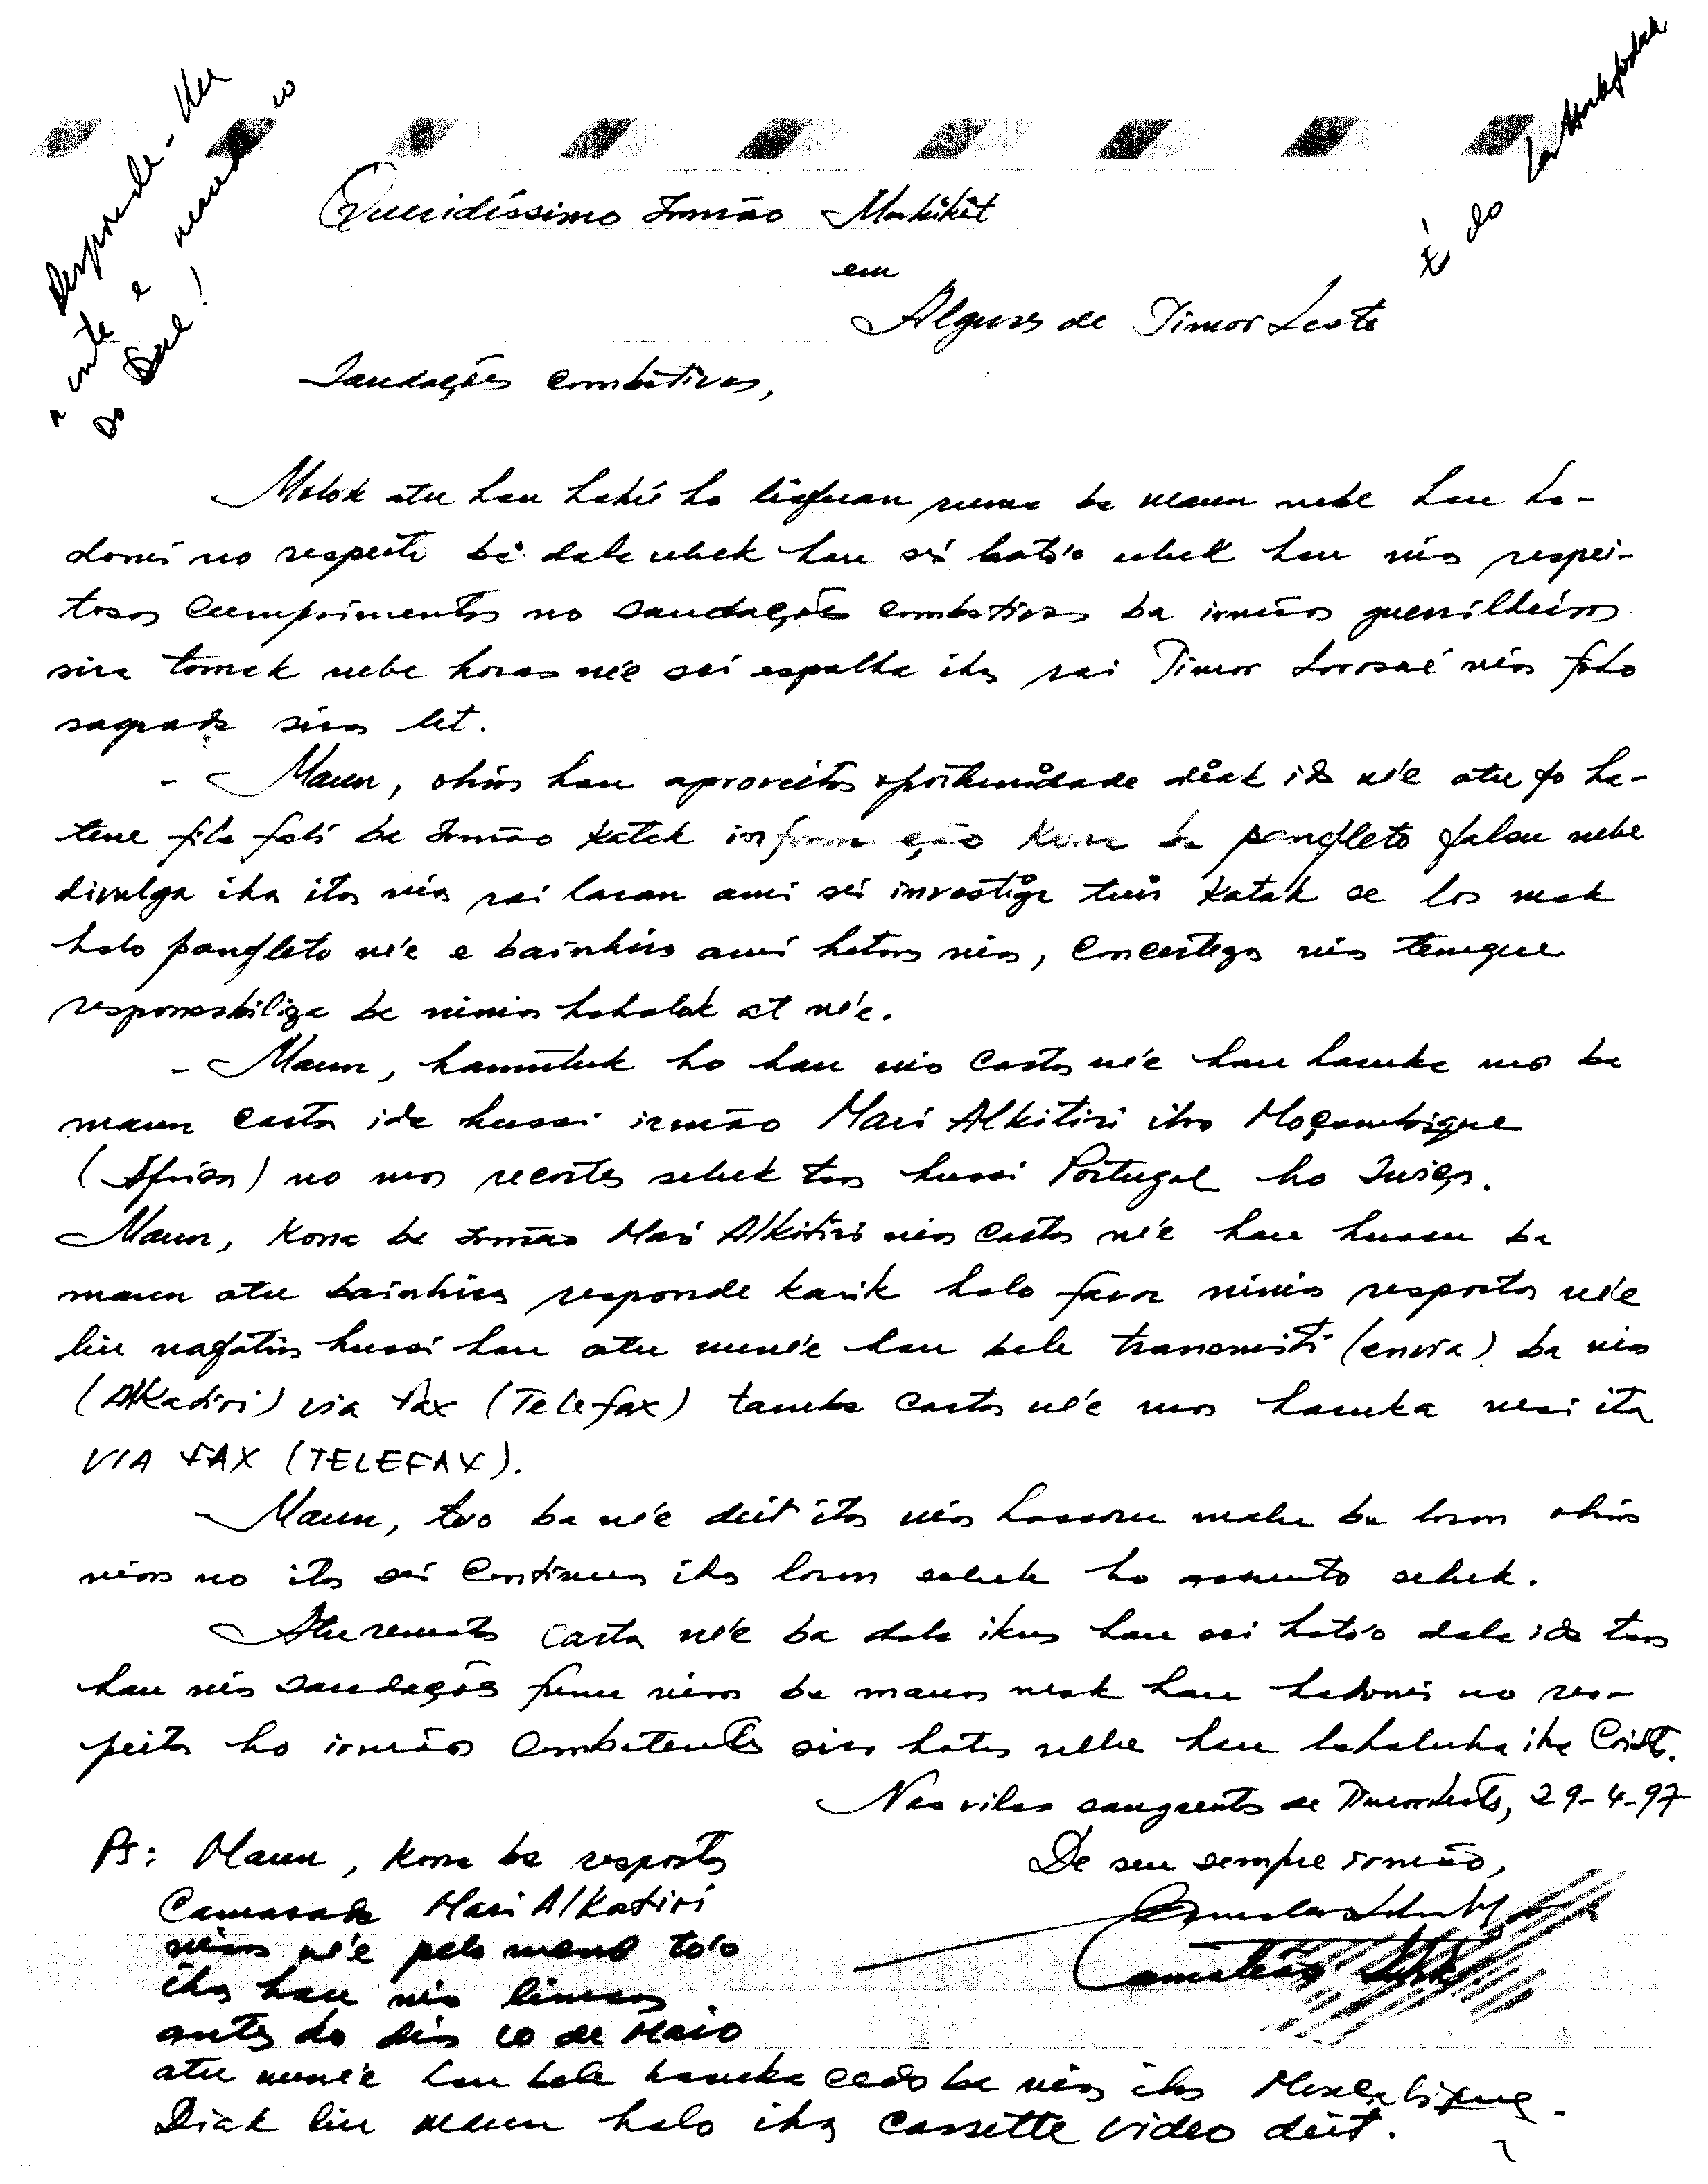 responde-lhe
e mando
ao Saul!
É do
Queridíssimo Irmão Maukikit
em
Algures de Timor Leste
Saudações combativas,
Molok atu hau hahú ho liafuan ruma ba maun nebe hau ha-
domi no respeita ba dala uluk hau sei hato'o uluk hau nia respei-
tosos cumprimentos no saudações combativas ba irmãos guerrilheiros
sira tomak nebe horas né'e sei espalha iha rai Timor Lorosaé nia foho
sagrado sira let.
- Maun, ohin hau aproveita oportunidade diak ida né'e atu fo ha-
tene fila fali ba Irmão katak informação kona ba panfleto falsu nebe
divulga iha ita nia rai laran ami sei investiga tuir katak se los mak
halo panfleto né'e e bainhira ami hetan nia, concerteza nia tenque
responsabiliza ba ninia hahalok at né'e.
- Maun, hamutuk ho hau nia carta né'e hau haruka mos ba
maun carta ida hussi irmão Mari Alkitiri iha Moçambique
(Africa) no mos recortes seluk tan hussi Portugal ho Suiça.
Maun, kona ba Irmão Mari Alkitiri nia carta né'e hau hussu ba
maun atu bainhira responde karik halo favor ninia resposta né'e
liu nafatin hussi hau atu nuné'e hau bele transmiti (envia) ba nia
(Alkadiri) via Fax (Telefax) tamba carta né'e mos haruka mai ita
VIA FAX (TELEFAX).
Maun, to'o ba né'e deit ita nia hassoru malu ba loron ohin
nian no ita sei continua iha loron seluk ho assunto seluk.
Atu remata carta né'e ba dala ikus hau sei hato'o dala ida tan
hau nia saudações funu nian ba maun mak hau hadomi no res-
peita ho irmãos combatentes sira hotu nebe hau lahaluha iha Cristo.
Nas vilas sangrentas de Timor Leste, 29-4-97
De seu sempre irmão,
Ps: Maun, kona ba resposta
Camarada Mari Alkatiri
nian né'e pelo menos to'o
iha hau nia liman
antes do dia 10 de Maio
atu nuné'e hau bele haruka cedo ba nia iha
Diak liu maun halo iha cassette video deit.